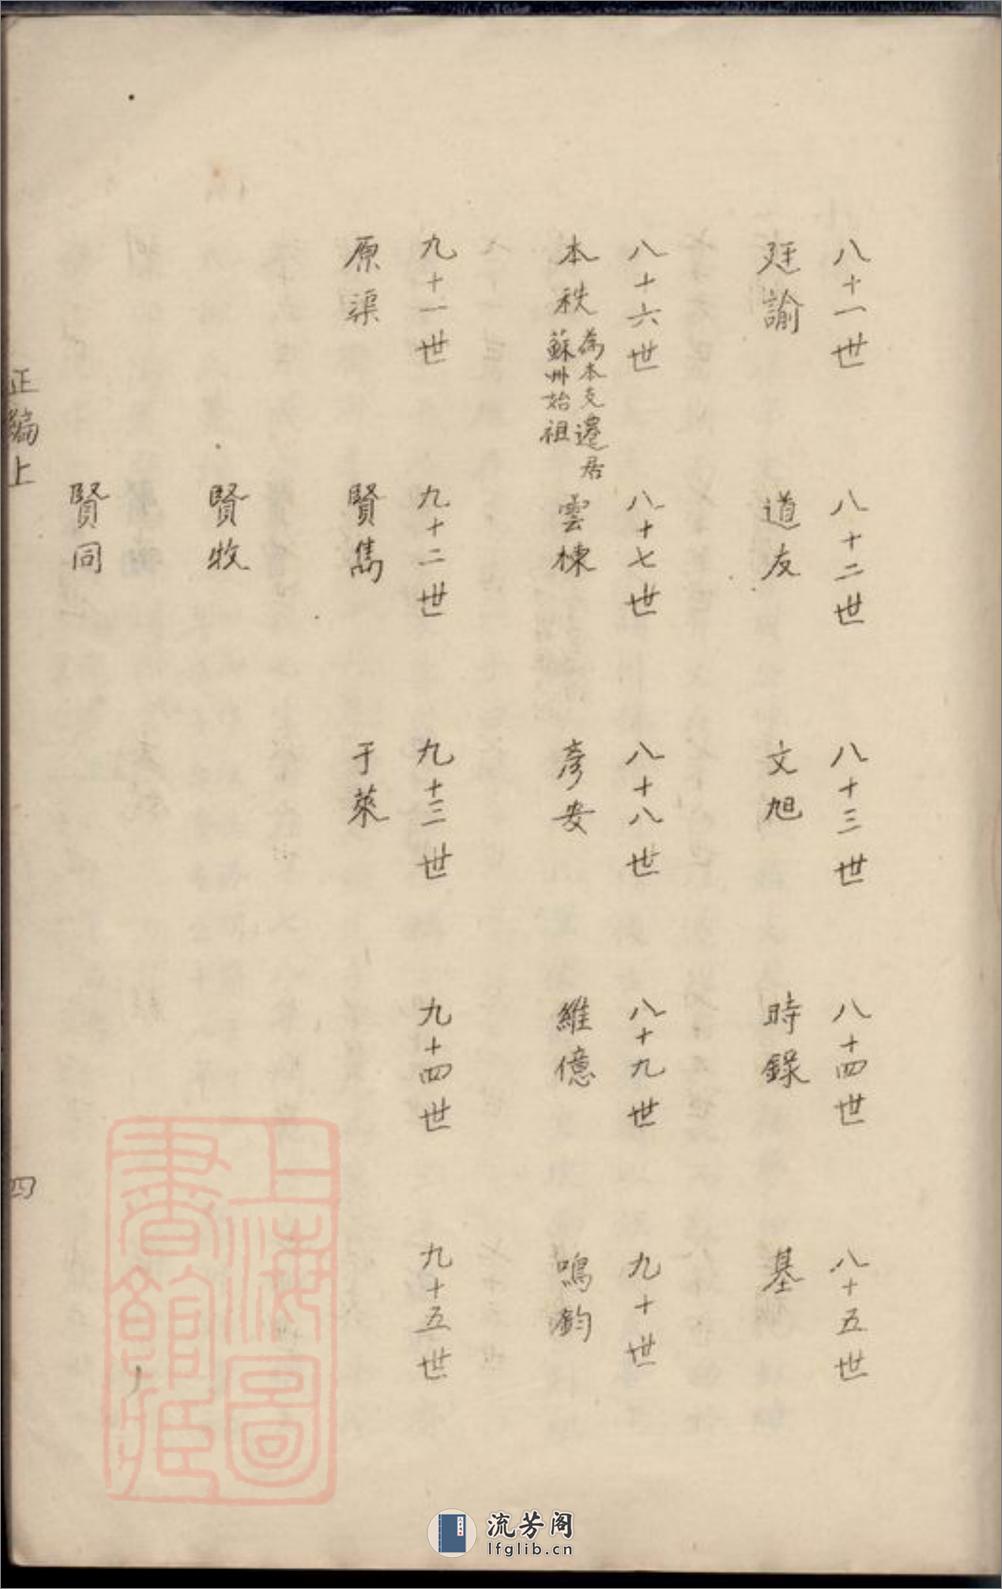 八十一世 八十二世 八十三世 八十四世 八十五世
廷諭 道友 文旭 時錄 基
八十六世 八十七世 八十八世 八十九世 九十世
本秩 為本支遷居蘇州始祖 雲棟 彥安 維億 鳴鈞
九十一世 九十二世 九十三世 九十四世 九十五世
原渠 賢雋 于萊
賢牧
賢同
正編上 四
上海圖書館藏
流芳阁
lfglib.cn